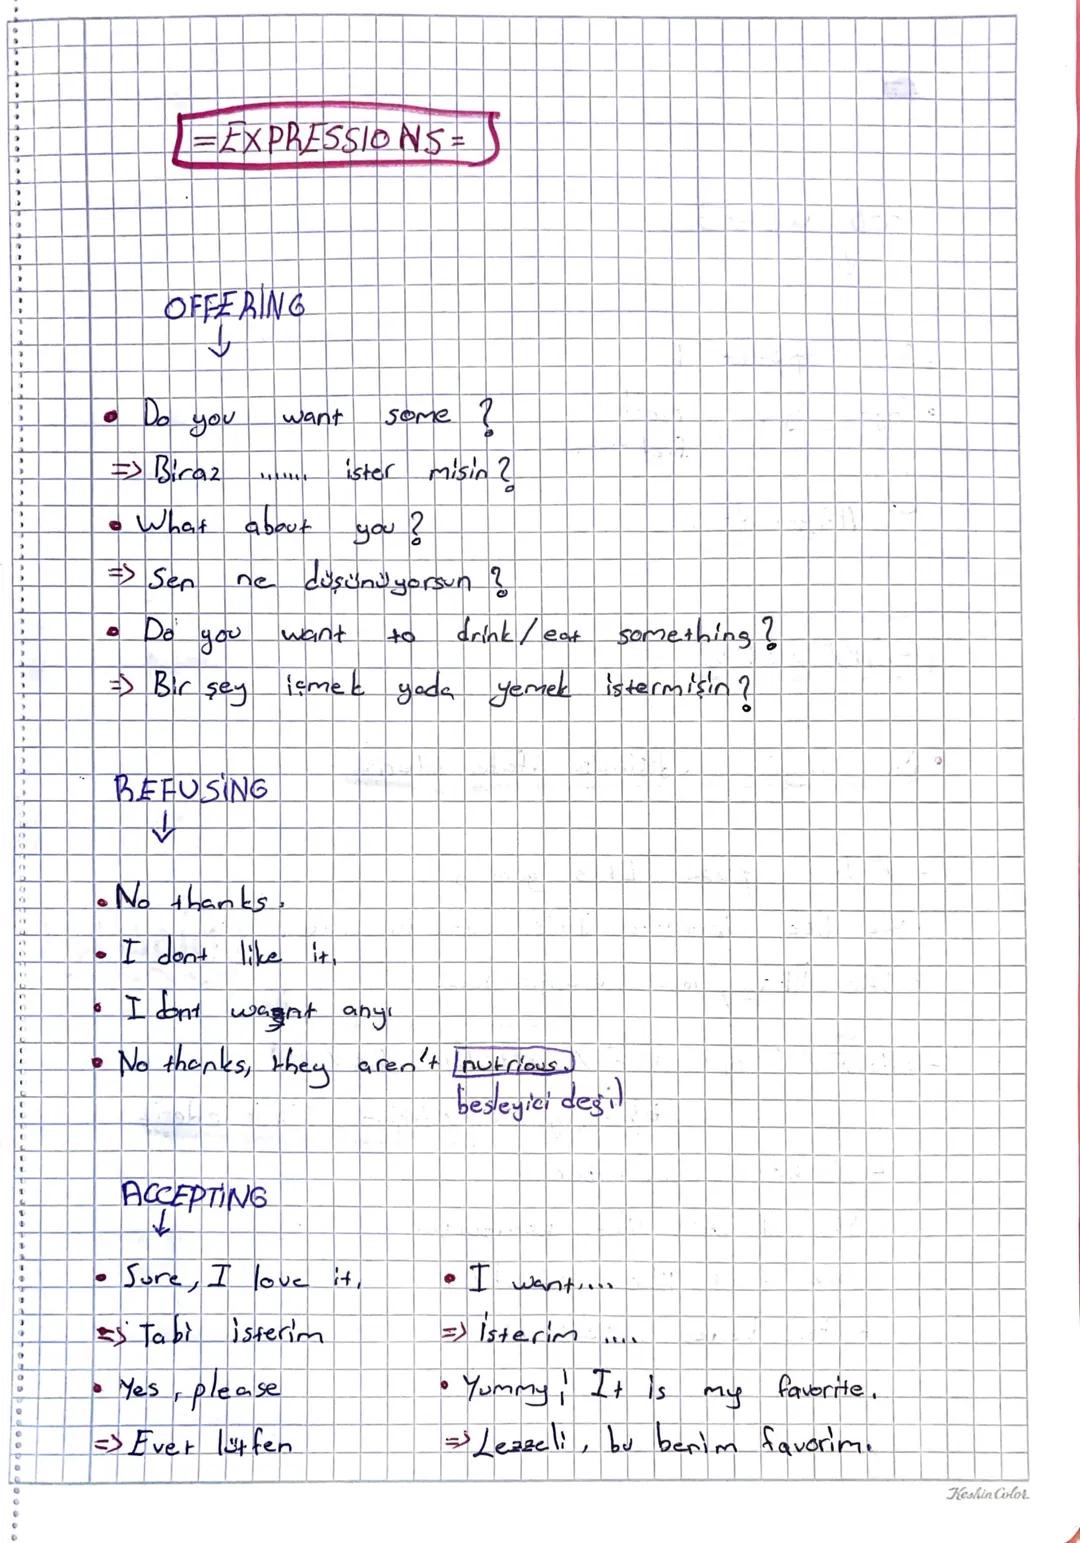 =EXPRESSIONS=
OFFERİNG
↓
• Do you want some ?
=> Biraz ....... ister misin ?
• What about you ?
=> Sen ne düşünüyorsun ?
• Do you want to drink/eat something ?
=> Bir şey içmek yada yemek istermişin ?
REFUSİNG
↓
• No thanks.
• I dont like it.
• I dont want any.
• No thanks, they aren't nutrious.
besleyici değil
ACCEPTİNG
↓
• Sure, I love it.
=> Tabi isterim
• Yes, please
=> Evet lütfen
• I want....
=> İsterim ....
• Yummy! It is my favorite.
=> Lezzeli, bu benim favorim.
Keskin Color